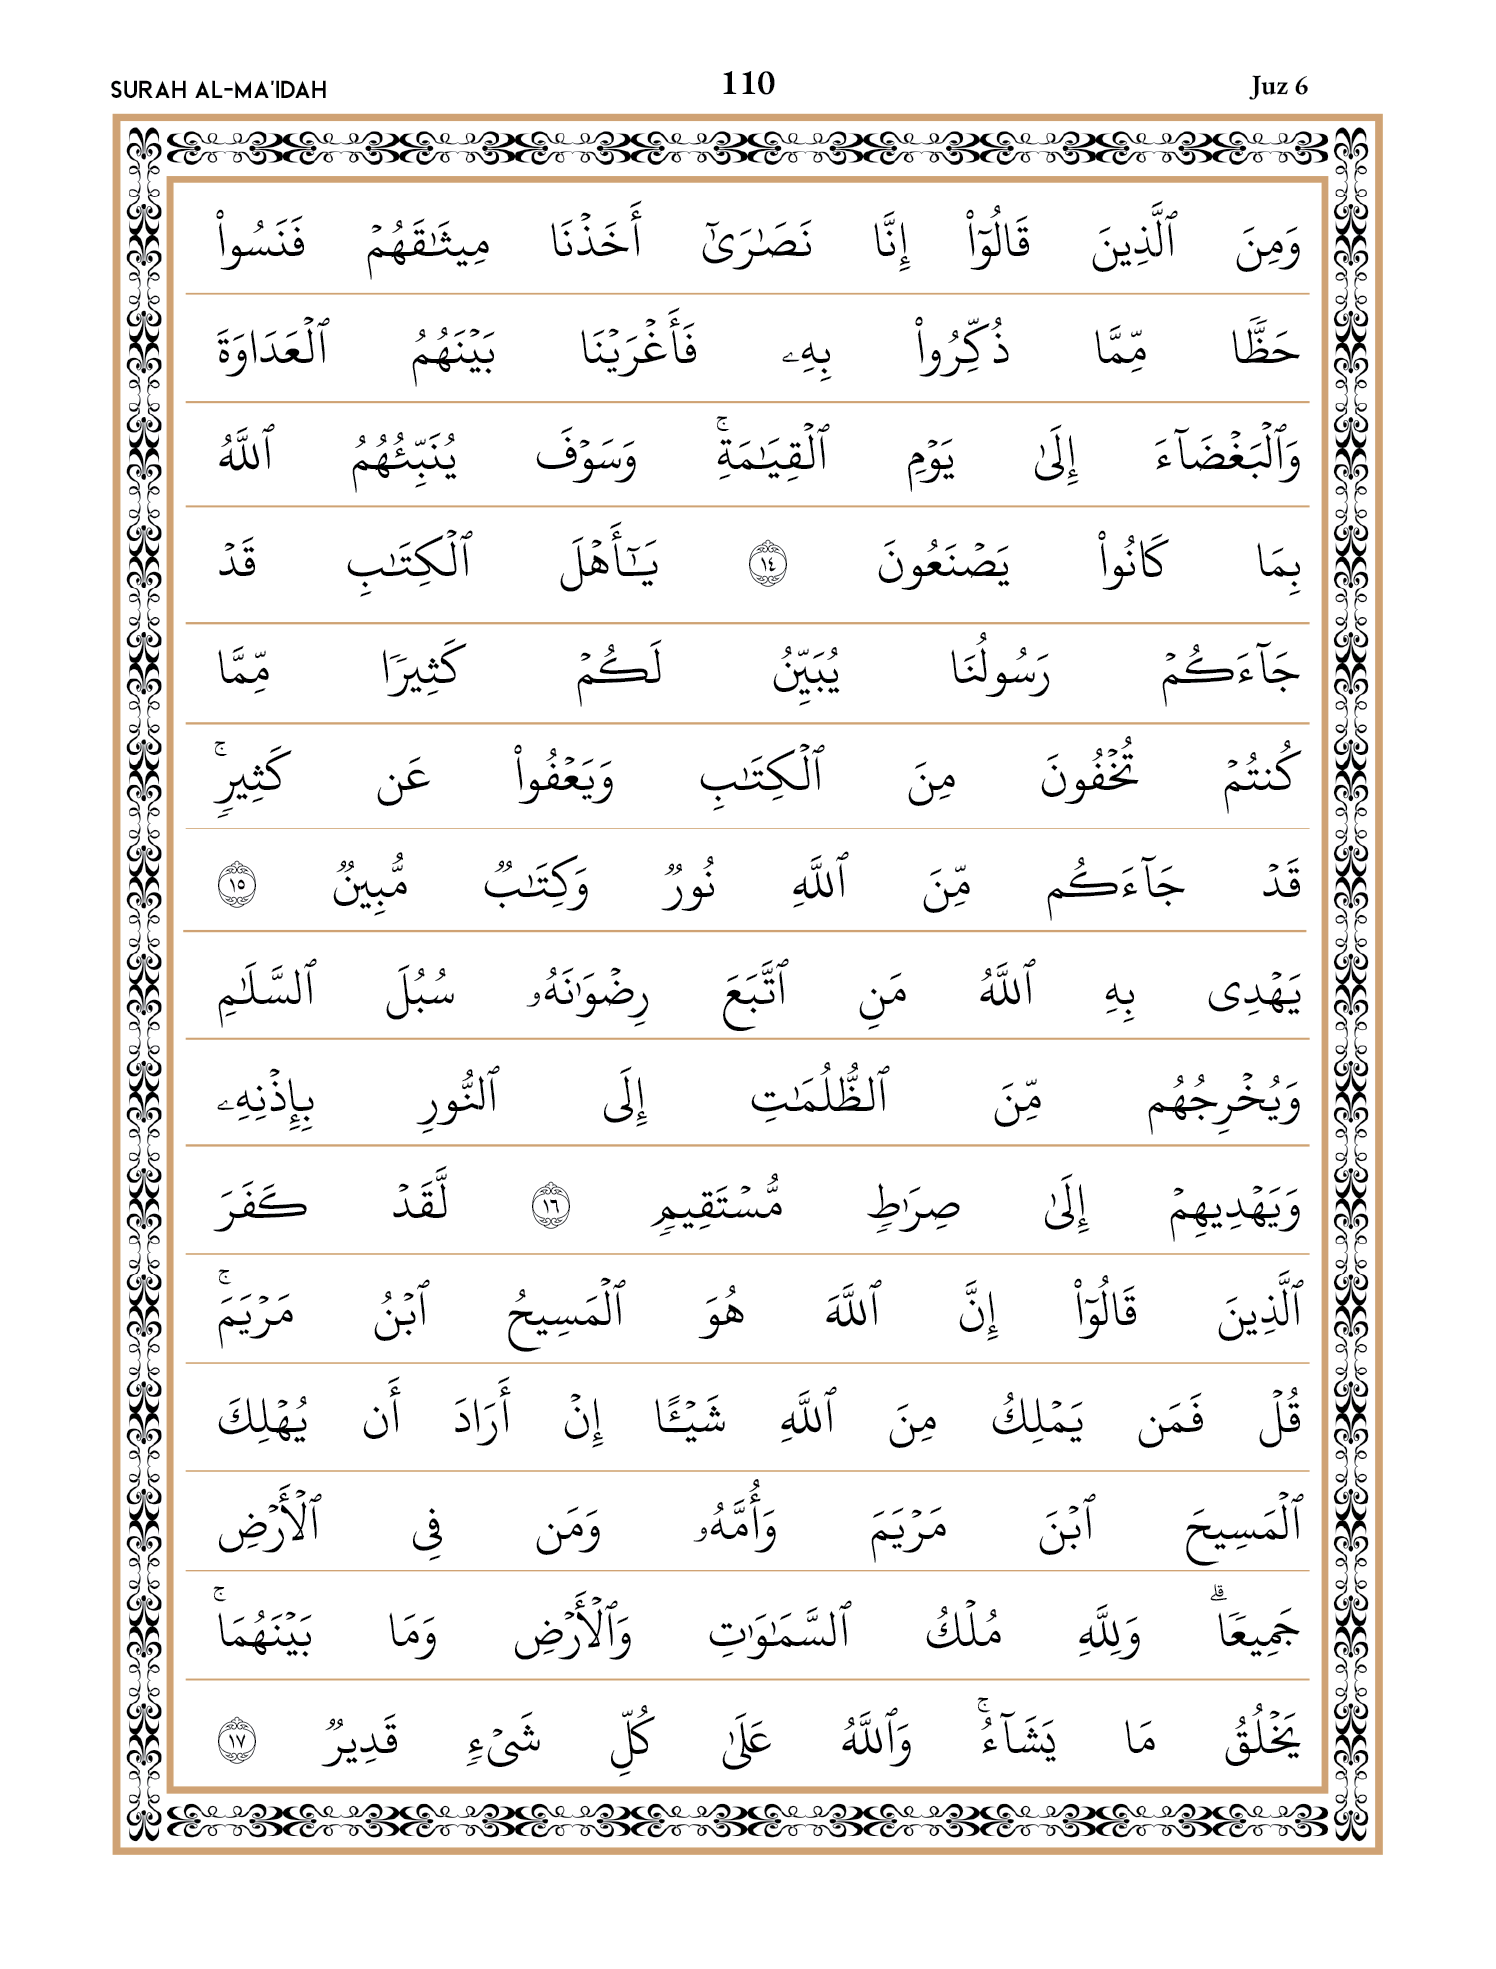 SURAH AL-MA'IDAH 110 Juz 6
وَمِنَ ٱلَّذِينَ قَالُوٓا۟ إِنَّا نَصَـٰرَىٰٓ أَخَذْنَا مِيثَـٰقَهُمْ فَنَسُوا۟
حَظًّا مِّمَّا ذُكِّرُوا۟ بِهِۦ فَأَغْرَيْنَا بَيْنَهُمُ ٱلْعَدَاوَةَ
وَٱلْبَغْضَآءَ إِلَىٰ يَوْمِ ٱلْقِيَـٰمَةِ ۚ وَسَوْفَ يُنَبِّئُهُمُ ٱللَّهُ
بِمَا كَانُوا۟ يَصْنَعُونَ ١٤ يَـٰٓأَهْلَ ٱلْكِتَـٰبِ قَدْ
جَآءَكُمْ رَسُولُنَا يُبَيِّنُ لَكُمْ كَثِيرًا مِّمَّا
كُنتُمْ تُخْفُونَ مِنَ ٱلْكِتَـٰبِ وَيَعْفُوا۟ عَن كَثِيرٍ ۚ
قَدْ جَآءَكُم مِّنَ ٱللَّهِ نُورٌ وَكِتَـٰبٌ مُّبِينٌ ١٥
يَهْدِى بِهِ ٱللَّهُ مَنِ ٱتَّبَعَ رِضْوَٰنَهُۥ سُبُلَ ٱلسَّلَـٰمِ
وَيُخْرِجُهُم مِّنَ ٱلظُّلُمَـٰتِ إِلَى ٱلنُّورِ بِإِذْنِهِۦ
وَيَهْدِيهِمْ إِلَىٰ صِرَٰطٍ مُّسْتَقِيمٍ ١٦ لَّقَدْ كَفَرَ
ٱلَّذِينَ قَالُوٓا۟ إِنَّ ٱللَّهَ هُوَ ٱلْمَسِيحُ ٱبْنُ مَرْيَمَ ۚ
قُلْ فَمَن يَمْلِكُ مِنَ ٱللَّهِ شَيْـًٔا إِنْ أَرَادَ أَن يُهْلِكَ
ٱلْمَسِيحَ ٱبْنَ مَرْيَمَ وَأُمَّهُۥ وَمَن فِى ٱلْأَرْضِ
جَمِيعًا ۗ وَلِلَّهِ مُلْكُ ٱلسَّمَـٰوَٰتِ وَٱلْأَرْضِ وَمَا بَيْنَهُمَا ۚ
يَخْلُقُ مَا يَشَآءُ ۚ وَٱللَّهُ عَلَىٰ كُلِّ شَىْءٍ قَدِيرٌ ١٧